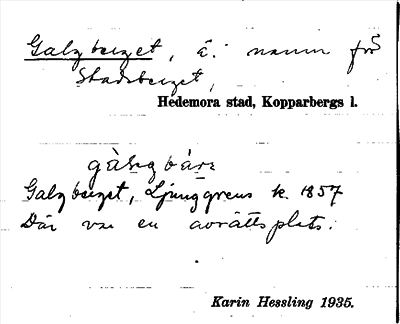 Galgberget, ä. namn för
Stadsberget,
Hedemora stad, Kopparbergs l.
Galgberget, Ljunggrens k. 1857
Där var en avrättsplats.
Karin Hessling 1935.